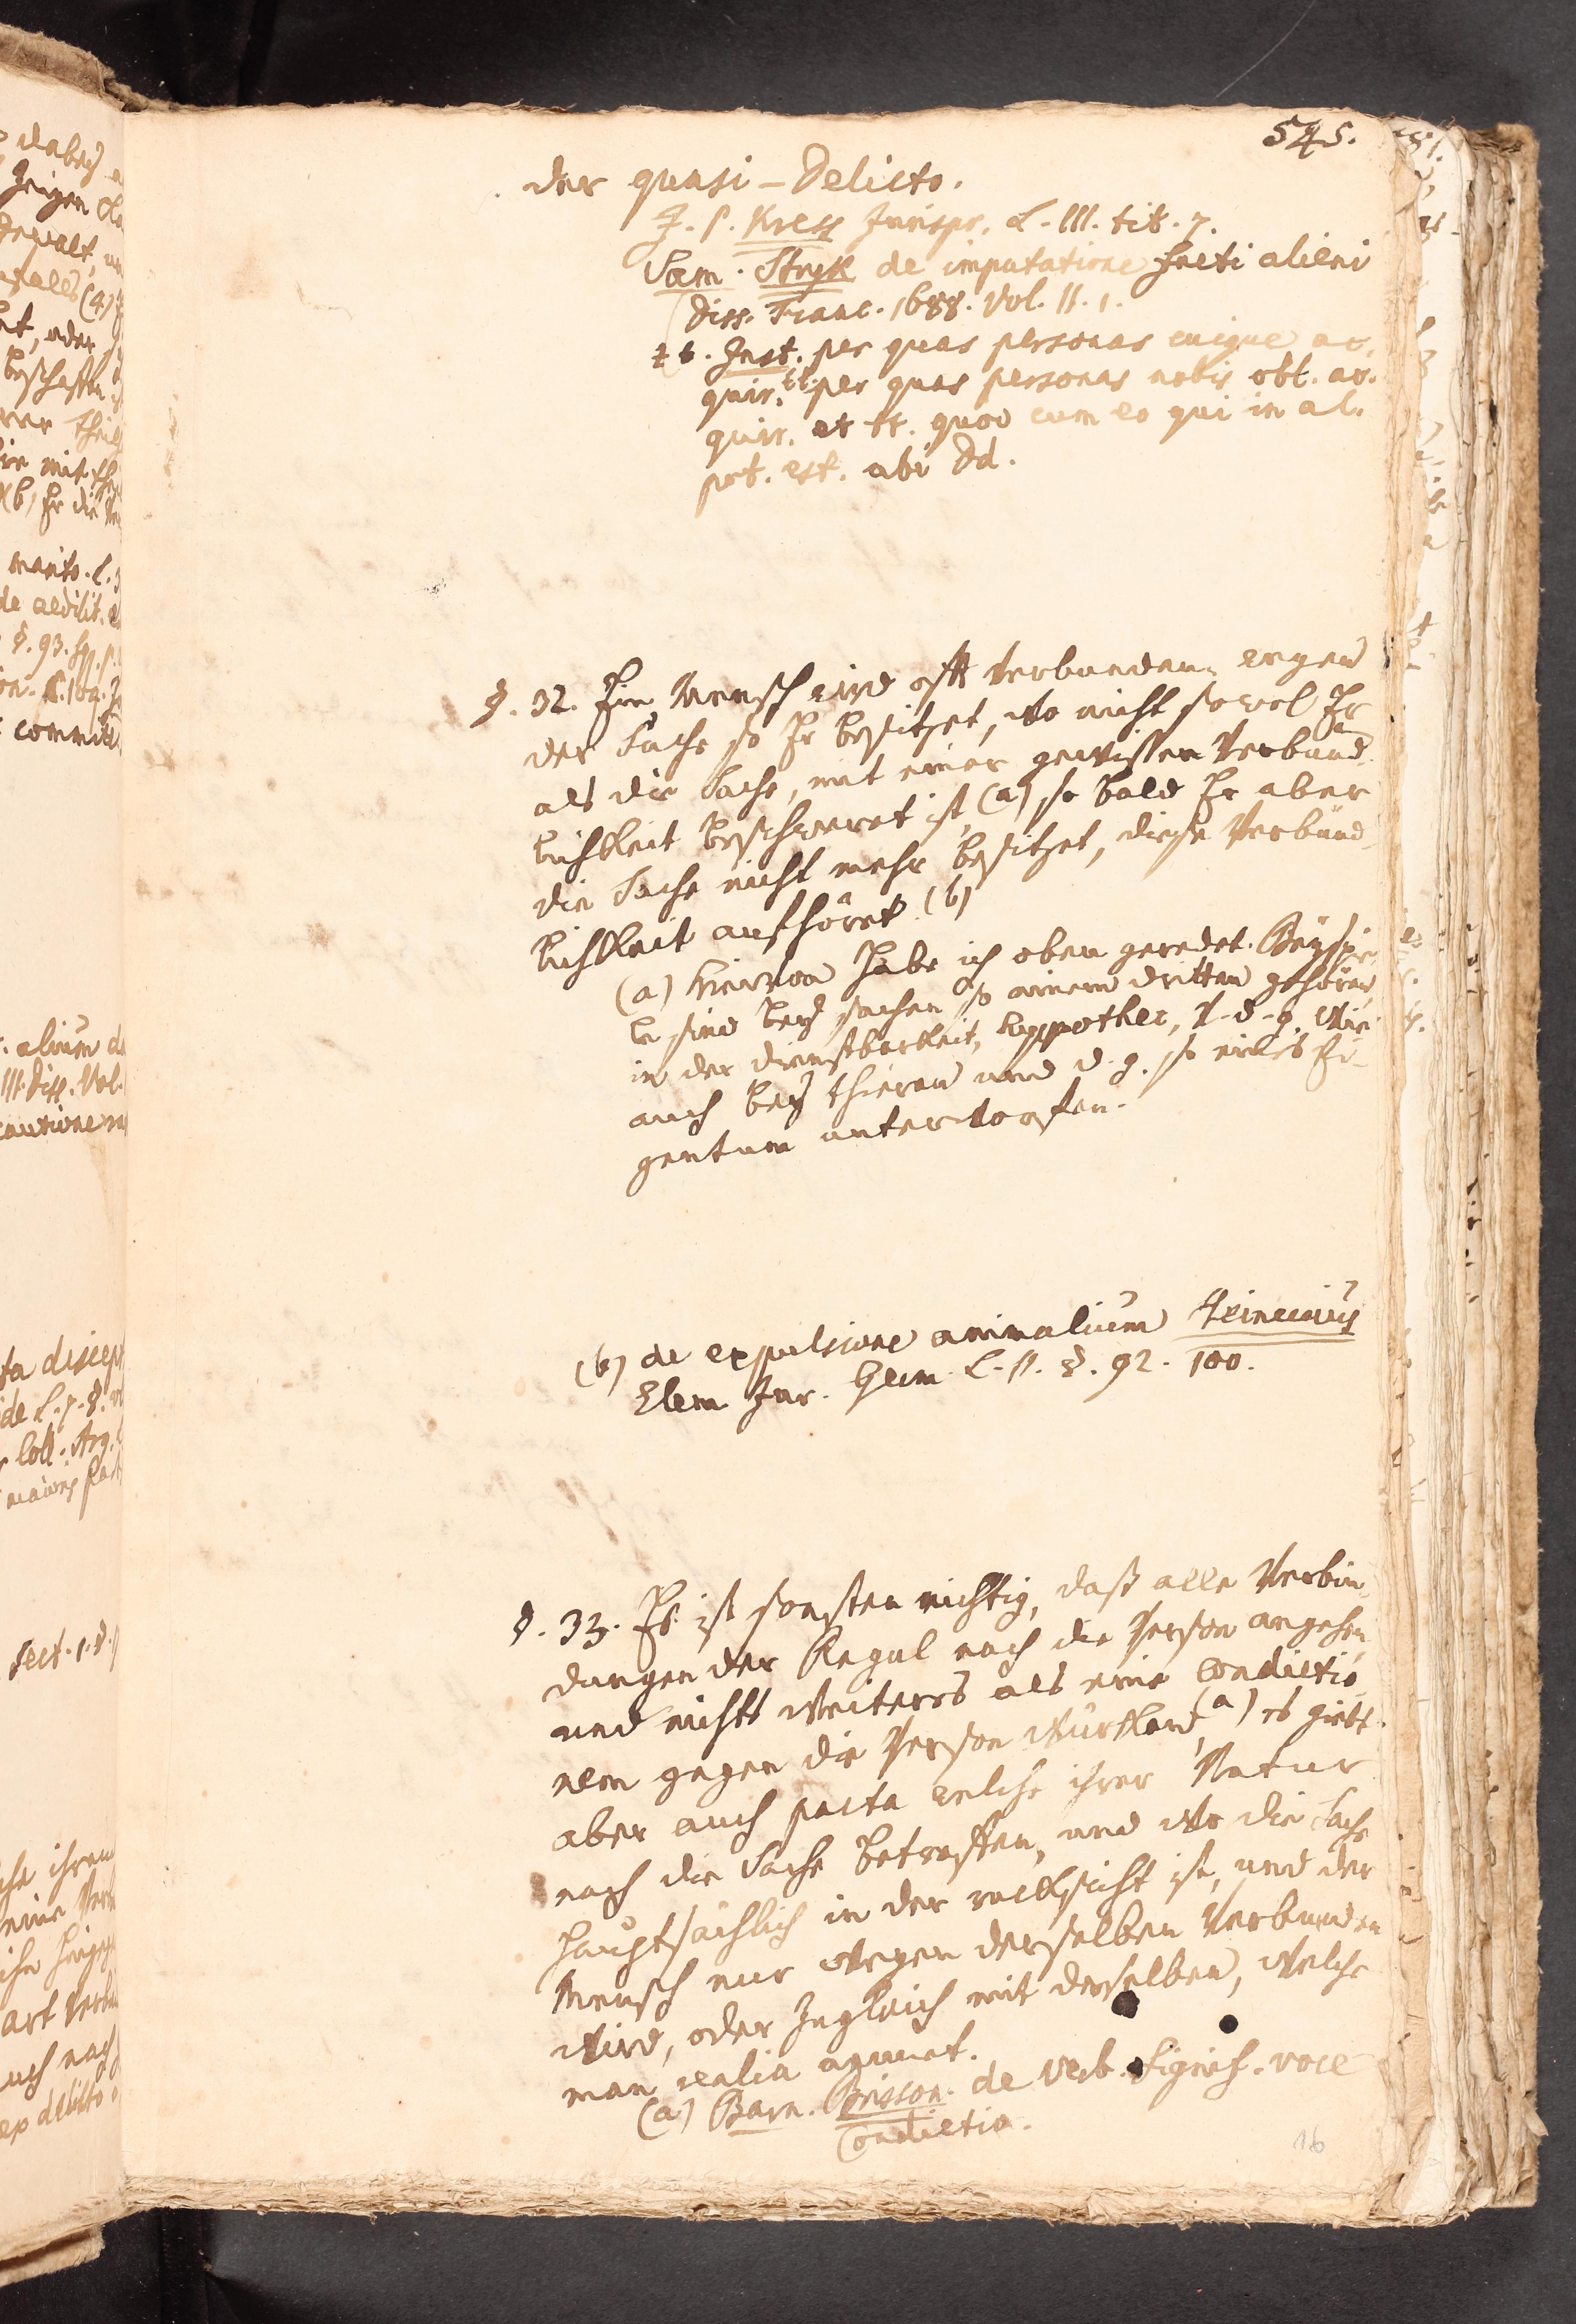 545.
der quasi-Delicto.
J. P. Kress Jurispr. L. III. tit. 7.
Sam. Stryk de imputatione facti alieni
Diss. Franc. 1688. Vol. II. 1.
tt. Inst. per quas personas cuique ac-
quir. tt. per quas personas nobis obl. ac-
quir. et tt. quod cum eo qui in al.
pot. est. ubi Dd.
§. 32. Ein Mensch wird offt verbunden wegen
der Sache so Er besitzet, wo nicht sowol Er
als die Sache, mit einer gewissen Verbünd-
lichkeit beschweret ist, (a) so bald Er aber
die Sache nicht mehr besitzet, diese Verbünd-
lichkeit aufhöret. (b)
(a) hiervon habe ich oben geredet. Beyspie-
le sind bey sachen so einem dritten gehören
in der dienstbarkeit, hypothec, V. d. g. wie
auch bey thieren und d. g. so eines Ei-
gentum unterworfen.
(b) de expulsione animalium Heineccius
Elem. Jur. Germ. L. II. §. 92. 100.
§. 33. Es ist sonsten richtig, daß alle Verbin-
dungen der Regul nach die Person angehen
und nichts weiters als eine condictio-
nem gegen die Person würken, (a) es giebt
aber auch pacta welche ihrer Natur
nach die Sache betreffen, und wo die Sache
hauptsächlich in der rucksicht ist, und der
Mensch nur wegen derselben Verbunden
wird, oder zugleich mit derselben, welche
man realia nennet.
(a) Barn. Brisson. de Verb. Signif. voce
Condictio.
16